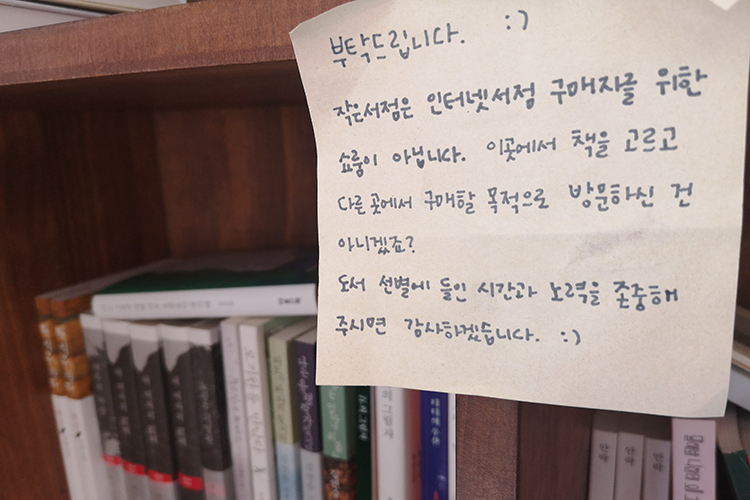 부탁드립니다. :)
작은서점은 인터넷서점 구매자를 위한
쇼룸이 아닙니다. 이곳에서 책을 고르고
다른 곳에서 구매할 목적으로 방문하신 건
아니겠죠?
도서 선별에 들인 시간과 노력을 존중해
주시면 감사하겠습니다. :)
안락
안락
안락